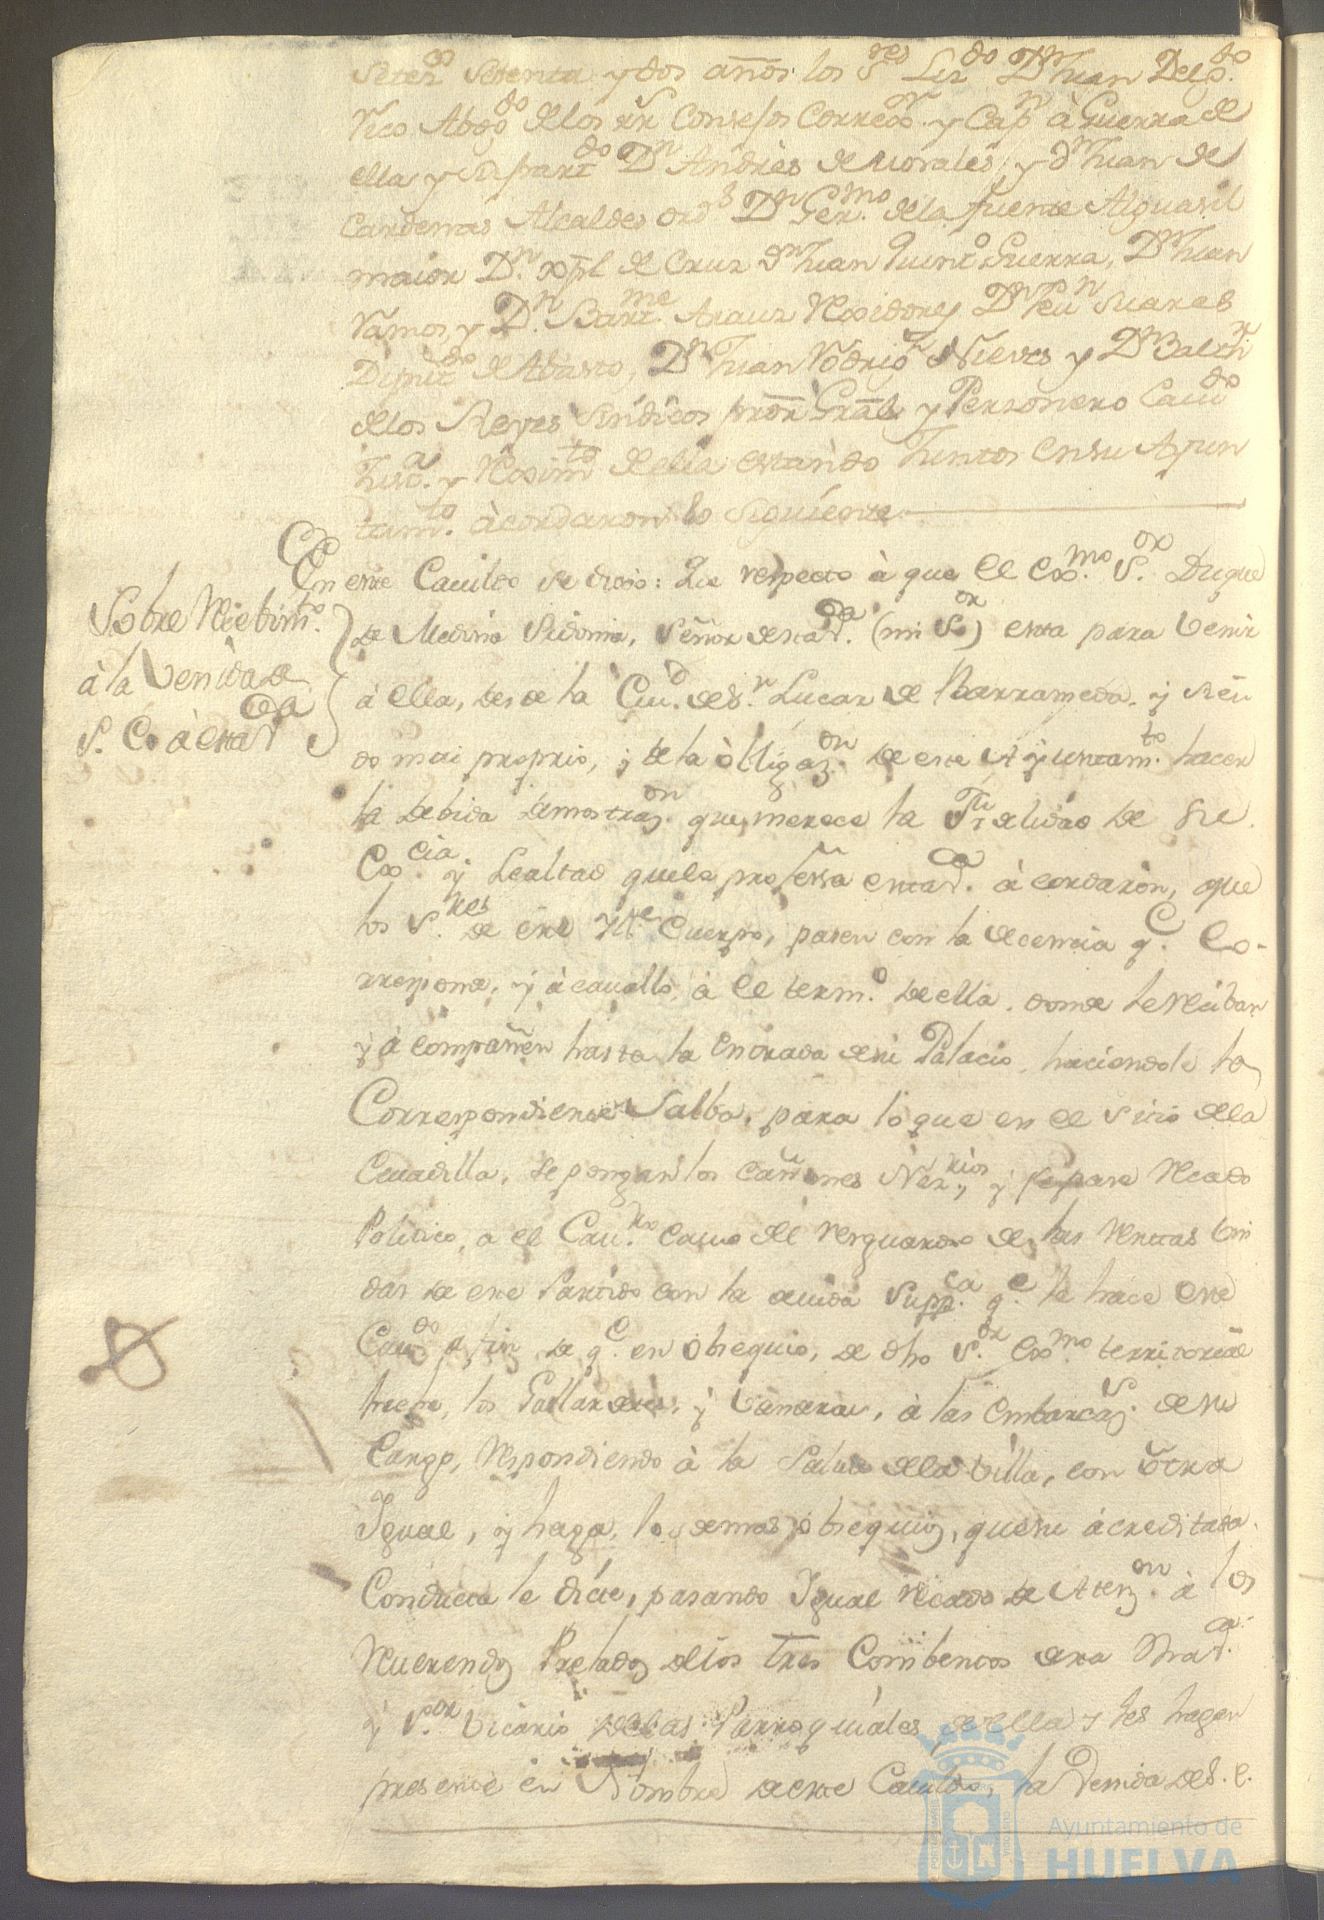 Setez.os setenta y dos años los S.res Liz.do D.n Juan Delg.do
Rico Abog.do de los rr.s Consejos Correx.or y Cap.n à Guerra de
ella y su part.do D.n Andrès de Morales, y d.n Juan de
Cardenas Alcaldes ord.s D.n Ger.mo de la fuente Alguasil
maior D.n xp̄l de Cruz d.n Juan Quint.o Guerra, D.n Juan
Ramos y D.n Bart.me Arauz Rexidores D.n Suares
Diput.do de Abasto, D.n Juan Rodrig.z de Nieves y D.n Balth.r
de los Reyes Sindicos prōr Grāl y Personero Cavil.do
Just.a y Reximi.to de ella estando Juntos en su Ayun
tam.to àcordaron lo siguiente
En este Cavildo se dixo: Que respecto à que el Exc.mo S.or Duque
de Medina Sidonia, Señor de esta V.a (mi S.or) esta para Venir
à ella, desde la Ciu.d de S.n Lucar de Barrameda. y sien
do mui proprio, y de la òbligaz.on de este Ayuntam.to hacer
la debida demostraz.on que merece la de Su
Exc.cia y Lealtad que le professa esta V.a àcordaròn, que
los S.res de este Ill.e Cuerpo, pasen con la decencia q.e Co-
rresponde, y à cavallo, à el term.o de ella. donde le Reciban
y àcompañen hasta la Entrada de su Palacio, haciendole la
Correspondiente Salba, para lo que en el sitio de la
Cuadilla, se pongan los cañones Nez.rios, y se pase Recado
Politico, a el Cav.ro Cavo del resguardo de las Rentas Uni
das de este Partido con la devida Supp.ca q.e le hace este
Cav.do a fin de q.e en òbsequio, de dho S.or Exc.mo territorial
los Gallardetes, y Vanderas, à las Embarcaz.s de su
Cargo, Respondiendo à la Salva de la Villa, con òtra
Igual, y haga, lo demas òbsequios, que su àcreditada
Conducta le dicte, pasando Igual Recado de Atenz.on à los
Reverendos Prelados de los tres Combentos de esta V.a
y S.or Vicario de las Parroquiàles de ella y les hagan
presente en Nombre de este Cavildo, la Venida de S. E.
Sobre Recibim.to
à la Venida de
S. E. à esta V.a
Ayuntamiento de
HUELVA